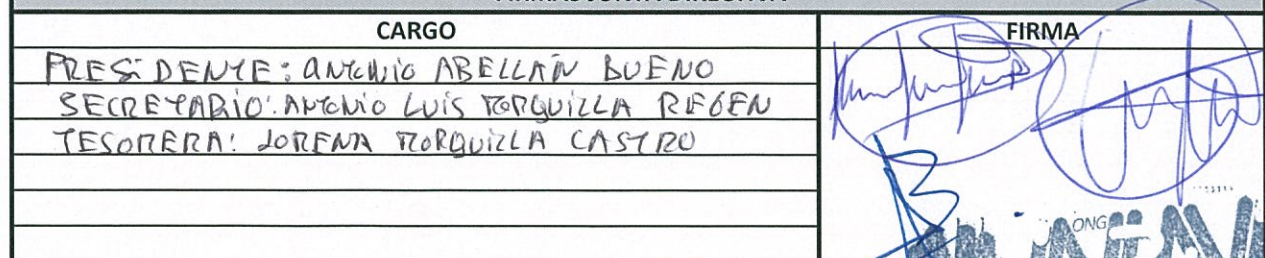 CARGO
FIRMA
PRESIDENTE: ANTONIO ABELLÁN BUENO
SECRETARIO: ANTONIO LUIS TORQUILLA
TESORERA: LORENA TORQUILLA CASTRO
ONG